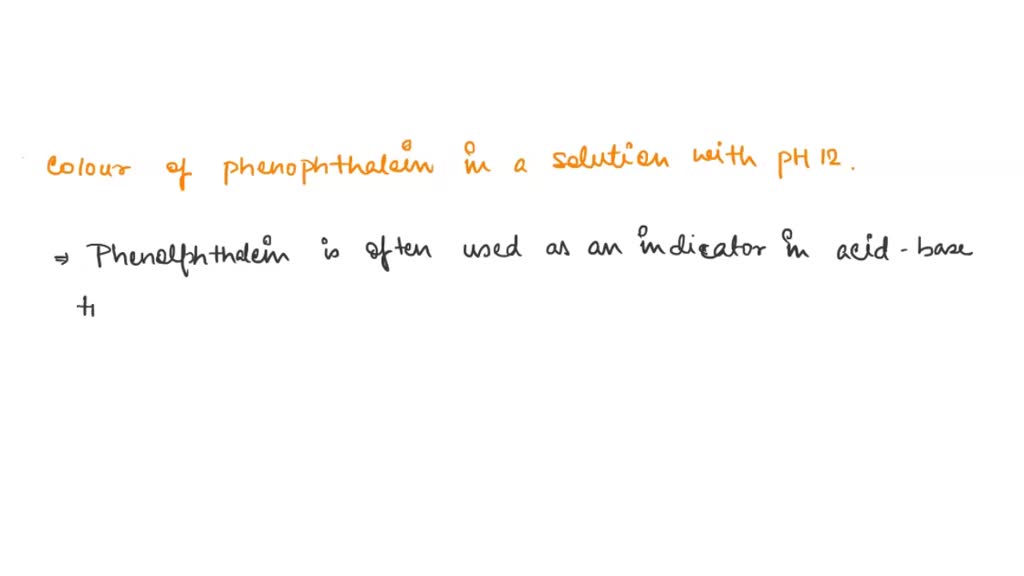 Colour of phenophthalein in a solution with pH 12.
⇒ Phenolphthalein is often used as an indicator in acid-base
ti